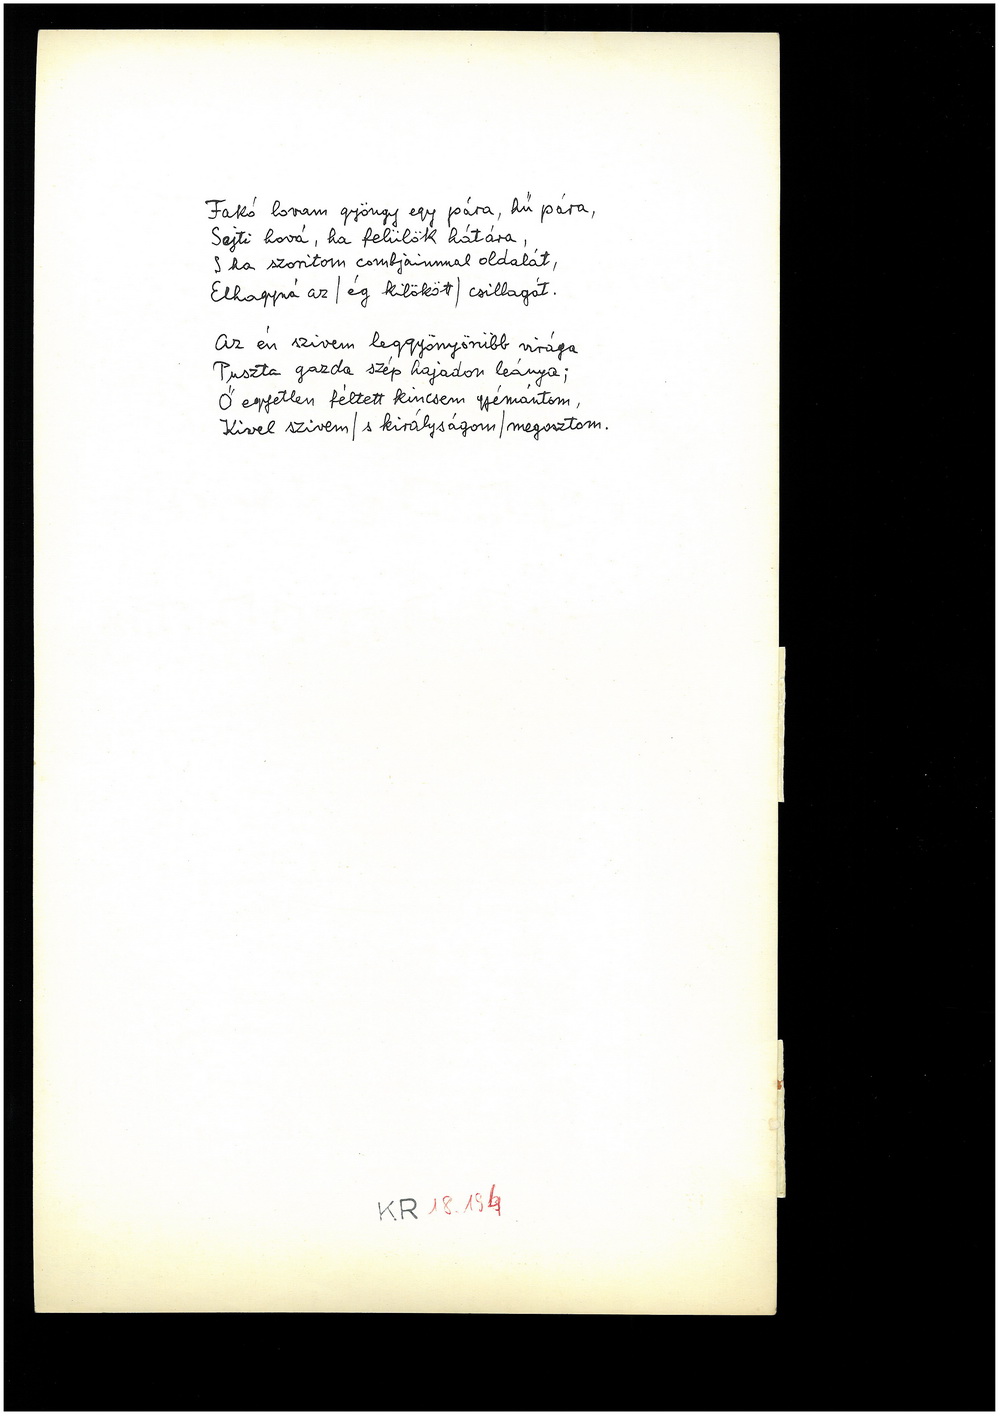 Fakó lovam gyöngy egy pára, hű pára,
Sejti hová, ha felülök hátára,
S ha szoritom combjaimmal oldalát,
Elhagyná az / ég kilökött / csillagát.
Az én szivem leggyönyörűbb virága
Puszta gazda szép hajadon leánya;
Ő egyetlen féltett kincsem gyémántom,
Kivel szivem / s királyságom / megosztom.
KR 18.19